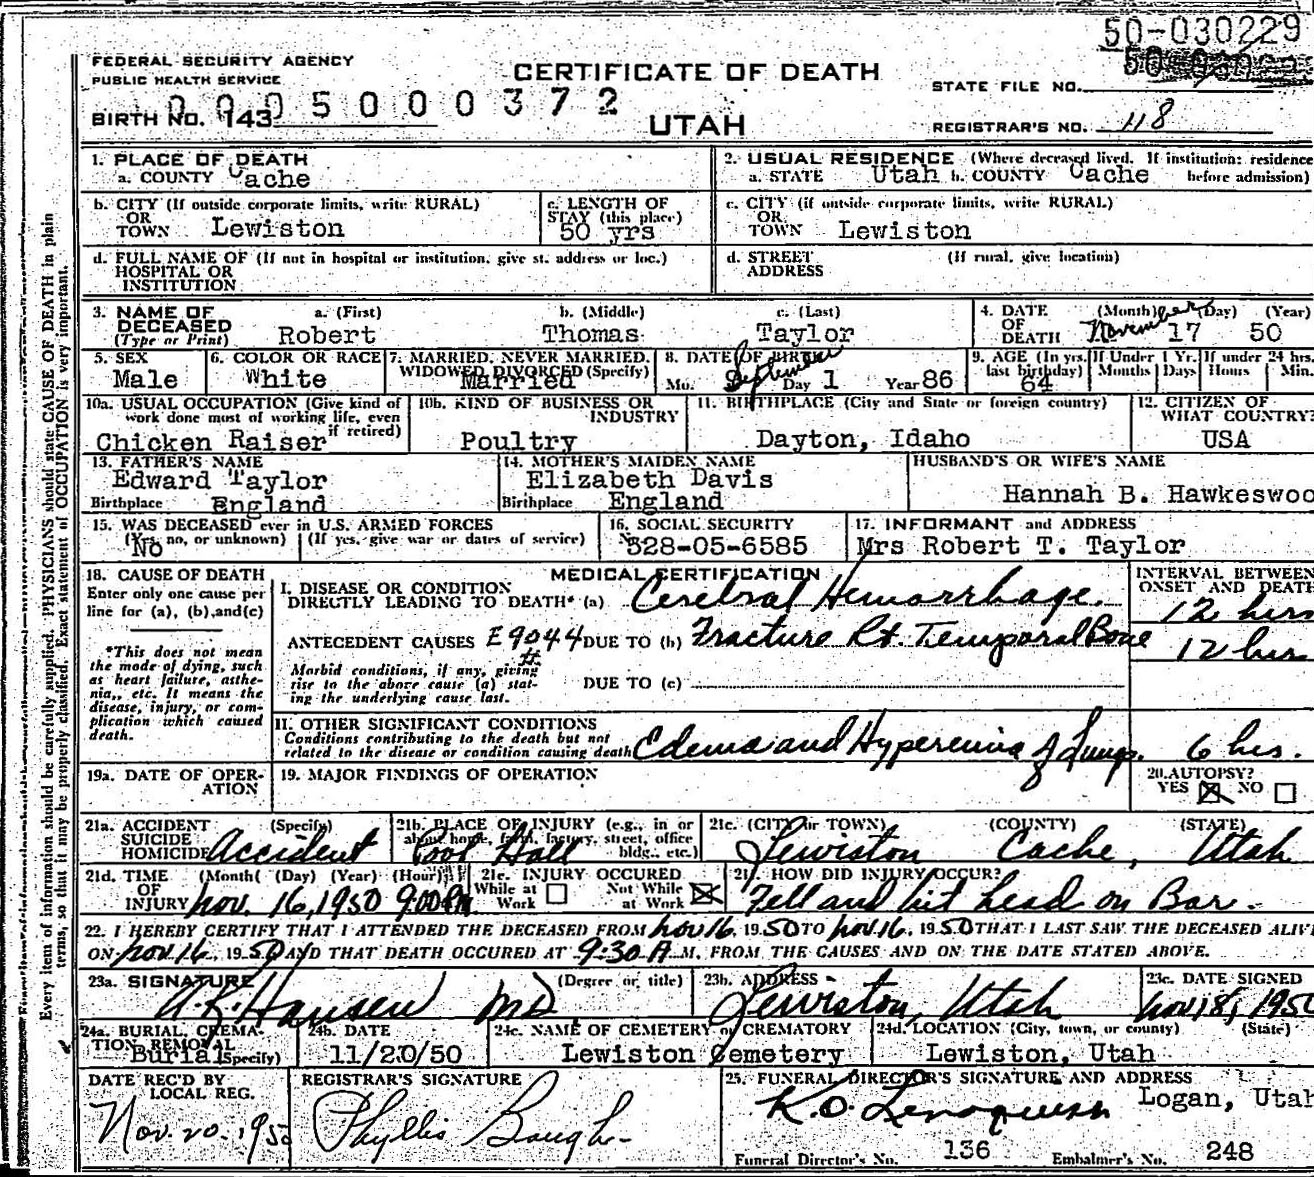 50-030229
FEDERAL SECURITY AGENCY
PUBLIC HEALTH SERVICE
CERTIFICATE OF DEATH
STATE FILE NO.
0005000372
BIRTH NO. 143
UTAH
REGISTRAR'S NO. 118
Every item of information should be carefully supplied. PHYSICIANS should state CAUSE OF DEATH in plain
terms, so that it may be properly classified. Exact statement of OCCUPATION is very important.
1. PLACE OF DEATH
a. COUNTY Cache
2. USUAL RESIDENCE (Where deceased lived. If institution: residence
a. STATE Utah b. COUNTY Cache before admission)
b. CITY (If outside corporate limits, write RURAL)
OR
TOWN Lewiston
c. LENGTH OF
STAY (this place)
50 yrs
c. CITY (if outside corporate limits, write RURAL)
OR
TOWN Lewiston
d. FULL NAME OF (If not in hospital or institution, give st. address or loc.)
HOSPITAL OR
INSTITUTION
d. STREET (If rural, give location)
ADDRESS
3. NAME OF DECEASED (Type or Print)
a. (First) b. (Middle) c. (Last)
Robert Thomas Taylor
4. DATE OF DEATH (Month) (Day) (Year)
November 17 50
5. SEX
Male
6. COLOR OR RACE
White
7. MARRIED, NEVER MARRIED,
WIDOWED DIVORCED (Specify)
Married
8. DATE OF BIRTH
Mo. September Day 1 Year 86
9. AGE (In yrs. last birthday)
64
If Under 1 Yr. Months Days
If under 24 hrs. Hours Min.
10a. USUAL OCCUPATION (Give kind of
work done most of working life, even
if retired)
Chicken Raiser
10b. KIND OF BUSINESS OR
INDUSTRY
Poultry
11. BIRTHPLACE (City and State or foreign country)
Dayton, Idaho
12. CITIZEN OF
WHAT COUNTRY?
USA
13. FATHER'S NAME
Edward Taylor
Birthplace England
14. MOTHER'S MAIDEN NAME
Elizabeth Davis
Birthplace England
HUSBAND'S OR WIFE'S NAME
Hannah B. Hawkeswoo
15. WAS DECEASED ever in U.S. ARMED FORCES
(Yes, no, or unknown) (If yes, give war or dates of service)
No
16. SOCIAL SECURITY
528-05-6585
17. INFORMANT and ADDRESS
Mrs Robert T. Taylor
18. CAUSE OF DEATH
Enter only one cause per
line for (a), (b), and (c)
*This does not mean
the mode of dying, such
as heart failure, asthe-
nia,, etc. It means the
disease, injury, or com-
plication which caused
death.
MEDICAL CERTIFICATION
INTERVAL BETWEEN
ONSET AND DEATH
I. DISEASE OR CONDITION
DIRECTLY LEADING TO DEATH* (a) Cerebral Hemorrhage. 12 hrs
ANTECEDENT CAUSES E9044 DUE TO (b) Fracture Rt. Temporal Bone 12 hrs
Morbid conditions, if any, giving
rise to the above cause (a) stat-
ing the underlying cause last.
DUE TO (c)
II. OTHER SIGNIFICANT CONDITIONS
Conditions contributing to the death but not
related to the disease or condition causing death Edema and Hyperemia of Lungs. 6 hrs.
19a. DATE OF OPER-
ATION
19. MAJOR FINDINGS OF OPERATION
20. AUTOPSY?
YES NO
21a. ACCIDENT (Specify)
SUICIDE
HOMICIDE Accident
21b. PLACE OF INJURY (e.g., in or
about home, farm, factory, street, office
bldg., etc.)
Pool Hall
21c. (CITY or TOWN) (COUNTY) (STATE)
Lewiston Cache, Utah
21d. TIME (Month) (Day) (Year) (Hour)
OF
INJURY Nov. 16, 1950 9:00 P.M.
21e. INJURY OCCURED
While at Work Not While at Work
21f. HOW DID INJURY OCCUR?
Fell and hit head on Bar.
22. I HEREBY CERTIFY THAT I ATTENDED THE DECEASED FROM Nov 16, 1950 TO Nov 16, 1950 THAT I LAST SAW THE DECEASED ALIVE
ON Nov 16, 1950 AND THAT DEATH OCCURED AT 9:30 A M. FROM THE CAUSES AND ON THE DATE STATED ABOVE.
23a. SIGNATURE (Degree or title)
A.R. Hansen MD
23b. ADDRESS
Lewiston, Utah
23c. DATE SIGNED
Nov 18, 1950
24a. BURIAL, CREMA-
TION REMOVAL
(Specify)
Burial
24b. DATE
11/20/50
24c. NAME OF CEMETERY or CREMATORY
Lewiston Cemetery
24d. LOCATION (City, town, or county) (State)
Lewiston, Utah
DATE REC'D BY
LOCAL REG.
Nov. 20. 1950
REGISTRAR'S SIGNATURE
Phyllis Baugh
25. FUNERAL DIRECTOR'S SIGNATURE AND ADDRESS
K.O. Logan, Utah
Funeral Director's No. 136 Embalmer's No. 248